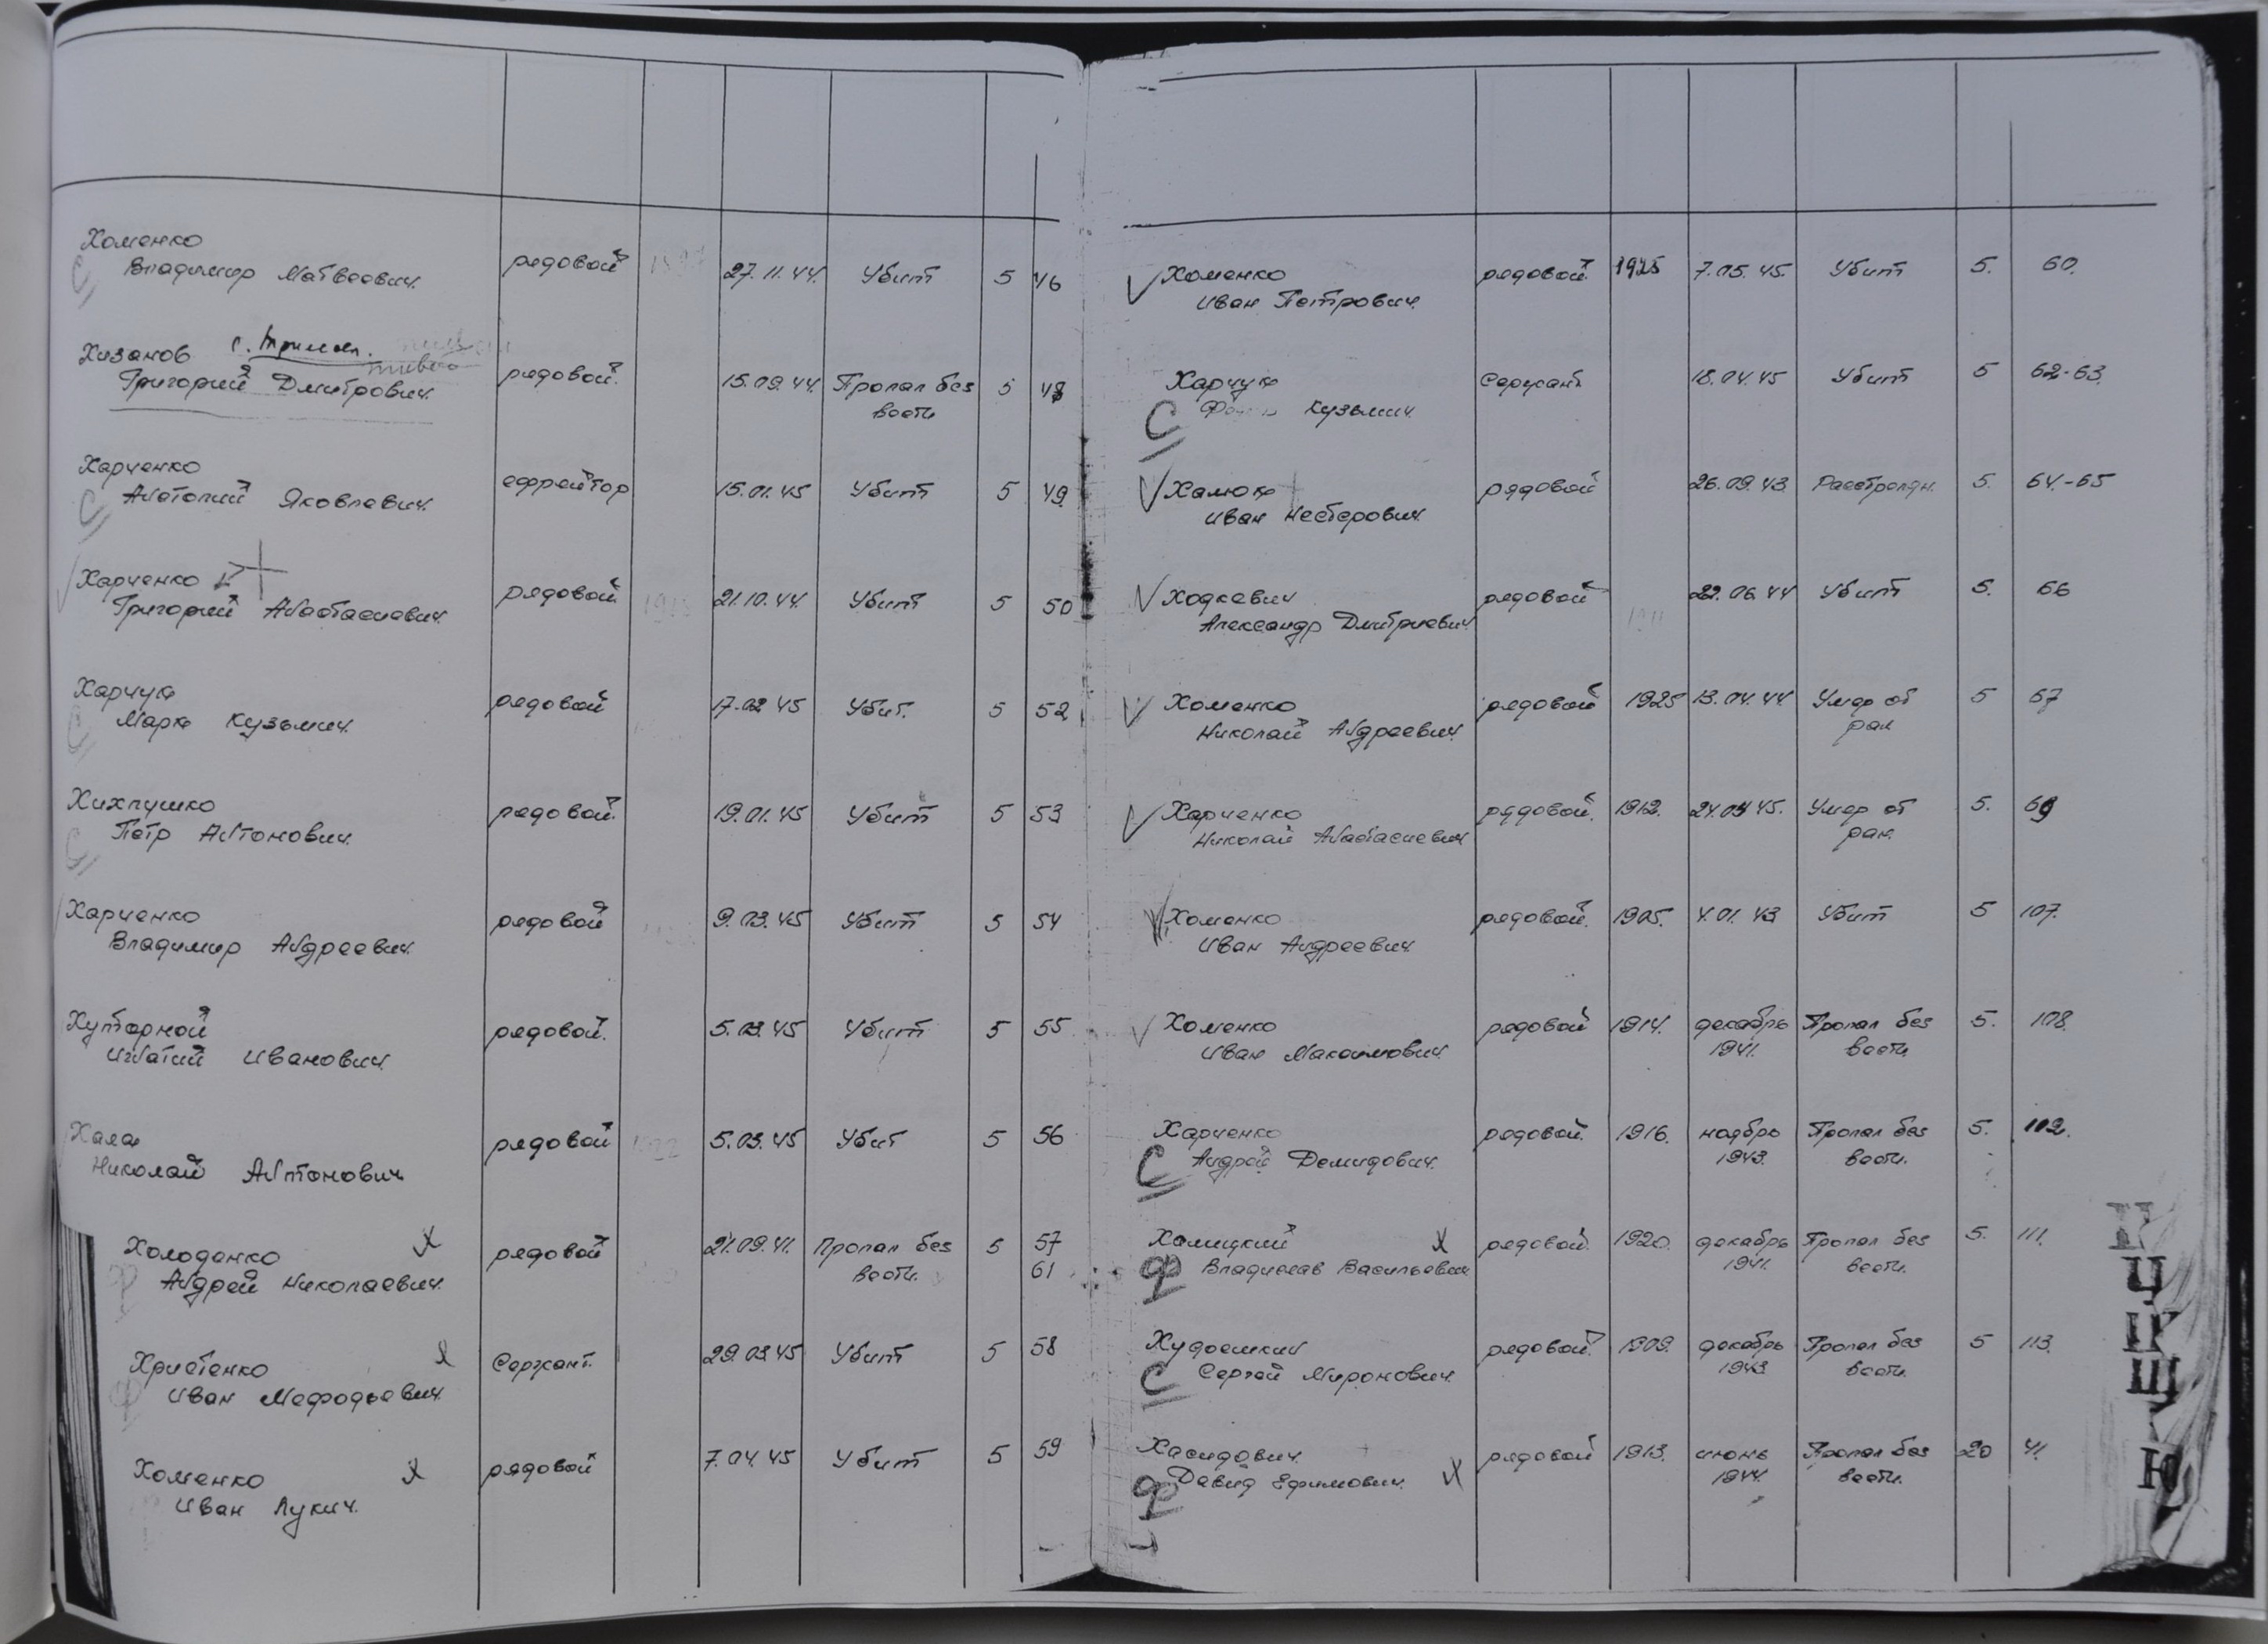 Хоменко
Владимир Матвеевич. рядовой 27.11.44. Убит 5 46
Хизанов
Григорий Дмитрович. рядовой. 15.09.44. Пропал без 5 48
вести
Харченко
Анатолий Яковлевич. ефрейтор 15.01.45 Убит 5 49
Харченко
Григорий Анастасиевич. рядовой 21.10.44. Убит 5 50
Харчук
Марк Кузьмич. рядовой 17.02 45 Убит. 5 52
Хихлушко
Петр Антонович. рядовой. 19.01.45 Убит 5 53
Харченко
Владимир Андреевич. рядовой 9.03.45 Убит 5 54
Хуторной
Игнатий Иванович. рядовой. 5.03.45 Убит 5 55
Хала
Николай Антонович рядовой 5.03.45 Убит 5 56
Холоденко х рядовой 21.09.41. Пропал без 5 57
Андрей Николаевич. вести. 61
Христенко х Сержант. 29.03 45 Убит 5 58
Иван Мефодьевич.
Хоменко х рядовой 7.04.45 Убит 5 59
Иван Лукич.
Хоменко рядовой. 1925 7.05.45. Убит 5. 60.
Иван Петрович.
Харчук Сержант 18.04.45 Убит 5 62-63.
С Кузьмич.
Хамюк рядовой 26.09.43. Расстрелян. 5. 64.-65
Иван Нестерович.
Ходкевич рядовой 22.06.44 Убит 5. 66
Александр Дмитриевич.
Хоменко рядовой 1925 13.04.44. Умер от 5 67
Николай Андреевич. ран
Харченко рядовой. 1912. 45. Умер от 5. 69
Николай Анастасиевич ран.
Хоменко рядовой. 1905. 4.01.43 Убит 5 107.
Иван Андреевич
Хоменко рядовой 1914. декабрь Пропал без 5. 108.
Иван Максимович. 1941. вести.
Харченко рядовой. 1916. ноябрь Пропал без 5.
С Андрей Демидович. 1943. вести.
Халицкий х рядовой. 1920. декабрь Пропал без 5. 111.
ф Владислав Васильевич 1941. вести.
Худошкин рядовой. 1909. декабрь Пропал без 5 113.
С Сергей Миронович. 1943 вести.
Хасидович. рядовой 1913. июнь Пропал без 20 41.
ф Давид Ефимович. х 1944. вести.
Ц
Щ
Ю